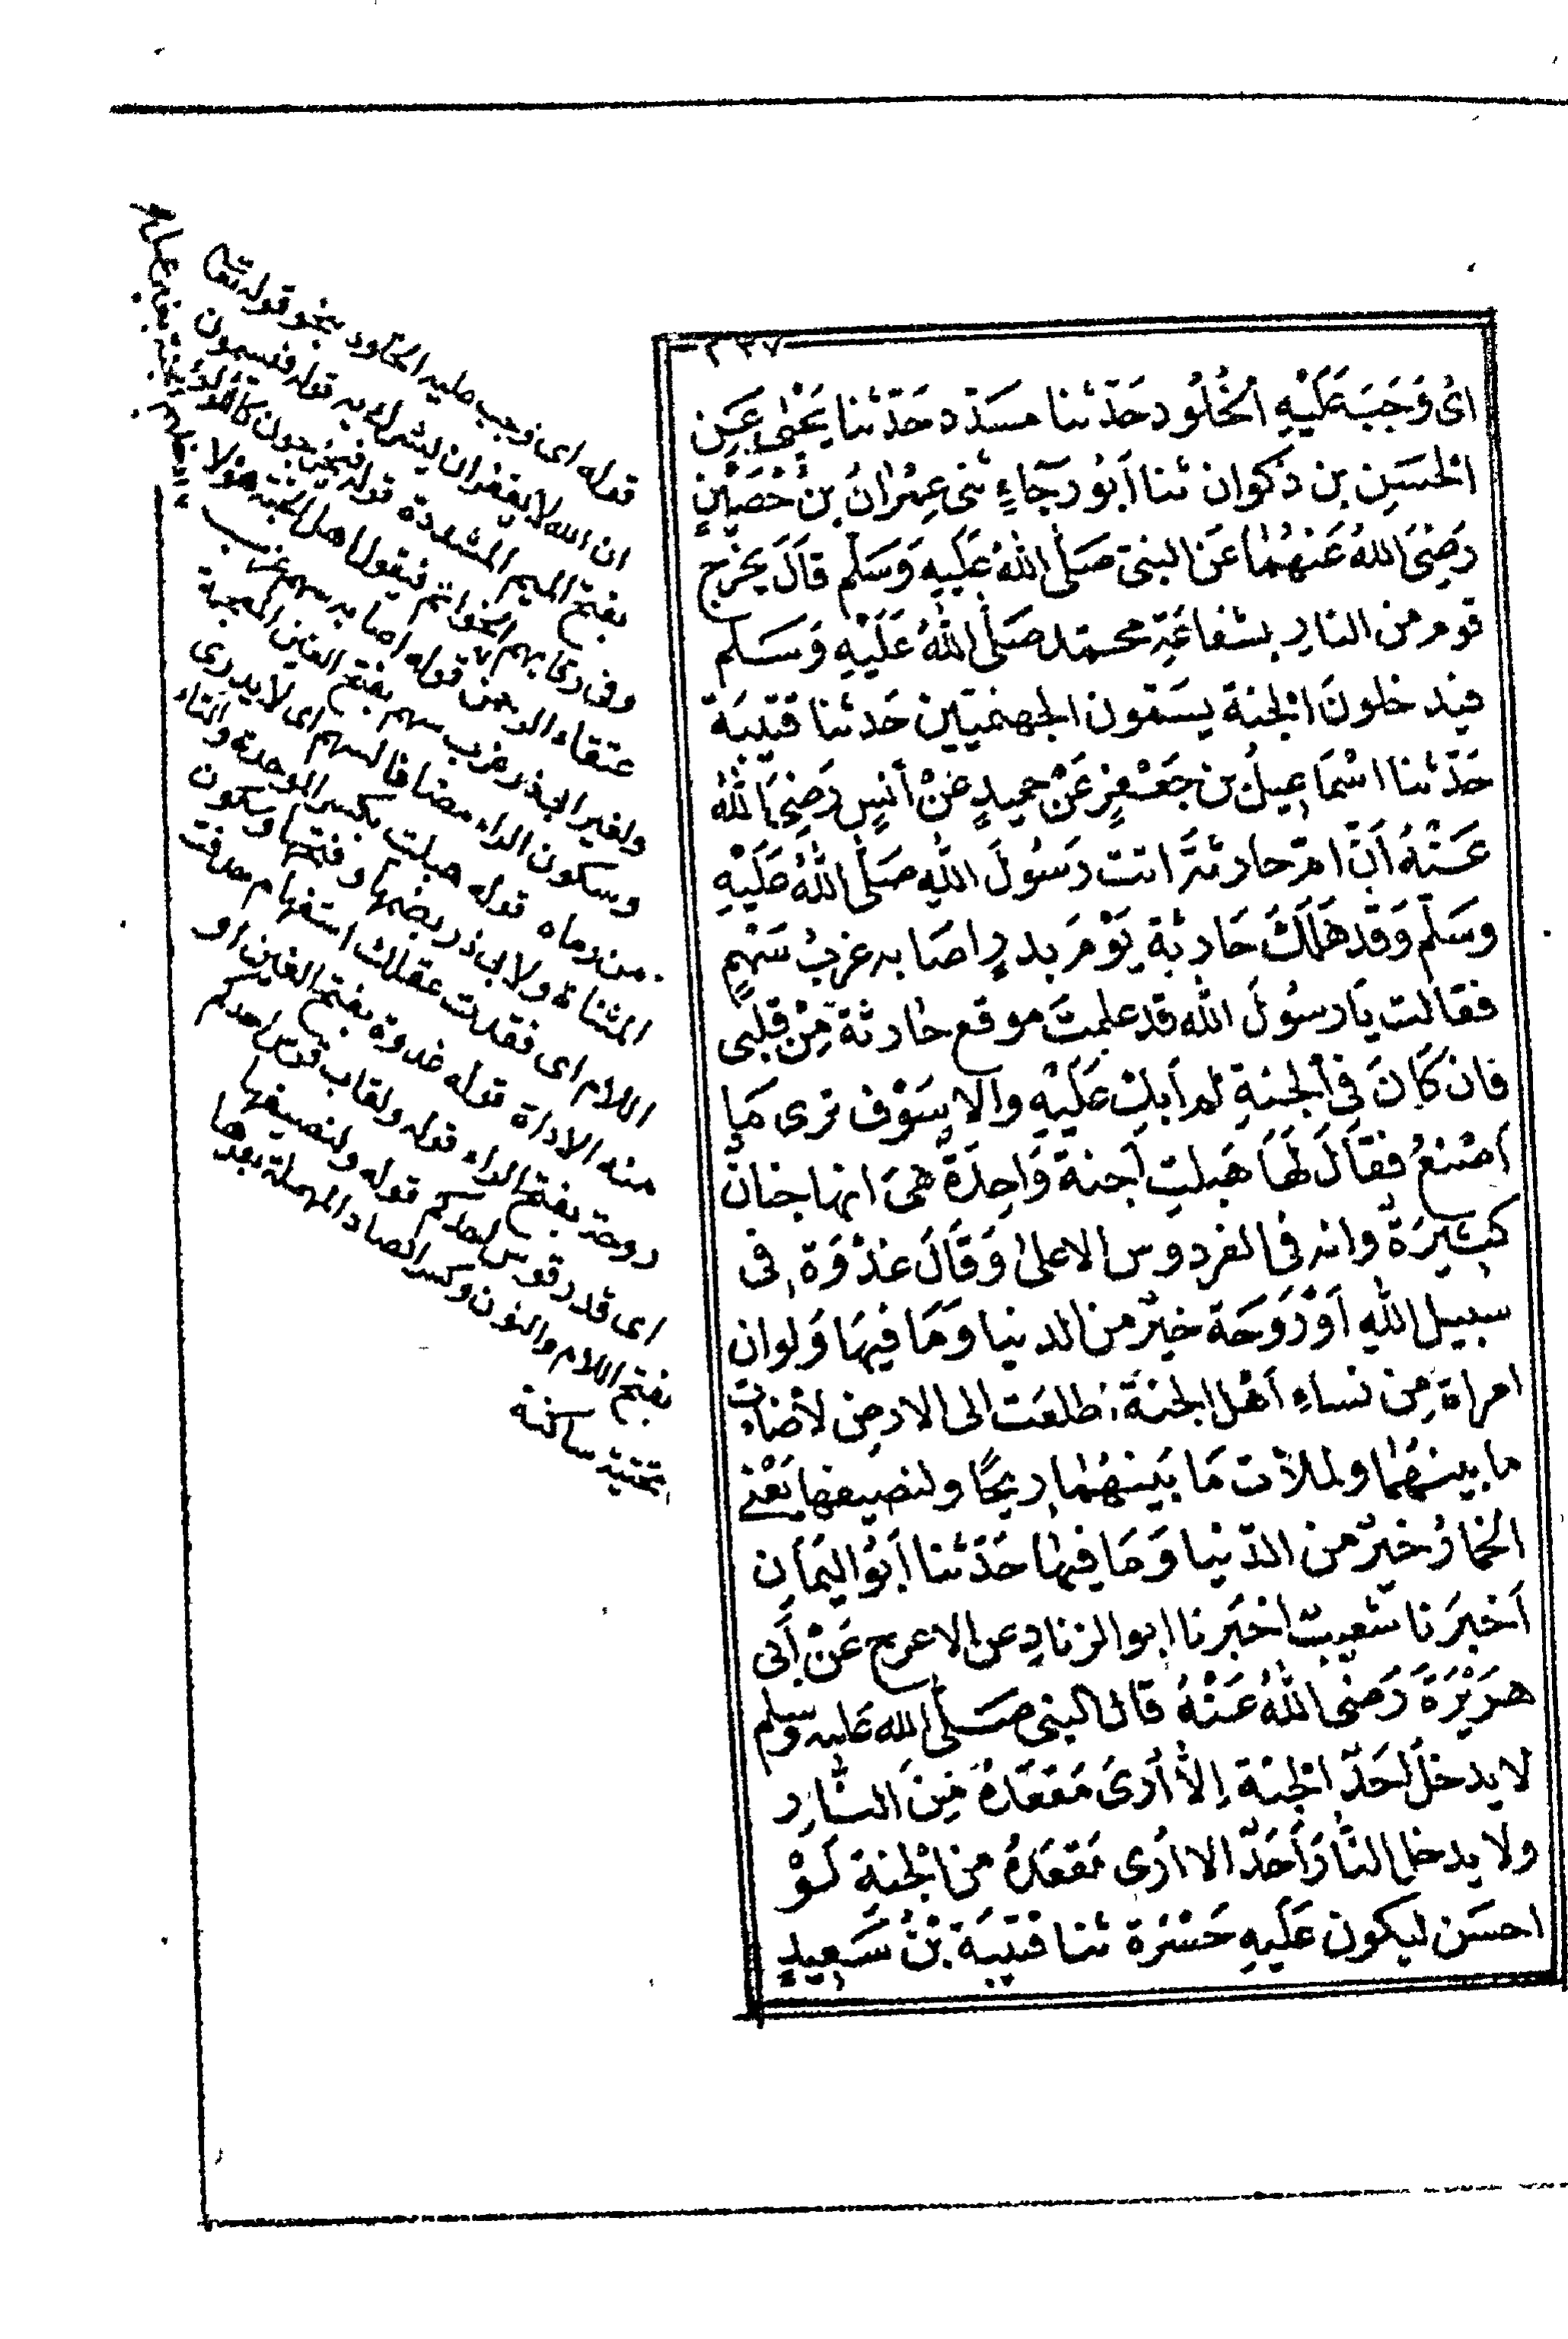 ٢٣٧
اى وَجَبَ عَلَيْهِ الْخُلُود حَدّثنا مسَدّد حَدّثنا يَحْيٰى عَنِ
الْحسَنِ بن ذَكوان ثنا أَبُو رَجَآءٍ ثنى عِمْرانُ بن حُصَيْنٍ
رَضِىَ اللهُ عَنْهُمٰا عَن النبىّ صَلّٰى اللهُ عَلَيهِ وَسَلّم قَالَ يخرُج
قوم من النارِ بشفاعَةِ محمّد صَلّٰى اللهُ عَلَيْهِ وَسَلم
فيدخلونَ الْجنة يسَمّون الجهنميّين حَدثنا قتيبَة
حَدّثنا اسْمَاعِيلُ بن جَعْفرٍ عَنْ حميدٍ عَنْ أنسٍ رَضِىَ اللهُ
عَنْهُ أنّ امّ حارثَةَ اتت رَسُولَ اللهِ صَلّٰى اللهُ عَلَيْهِ
وَسَلّم وَقَد هَلَكَ حَارثة يَوْمَ بدرٍ اصَابه غربُ سَهْمٍ
فقالت يَا رسُولَ الله قد علمتَ موقع حٰارثة مِنْ قلبى
فان كَانَ فى الجنةِ لم أبكِ عَلَيْهِ والا سَوْف ترى مَا
اَصْنعُ فقَالَ لَهَا هَبلتِ أجنة وَاحِدَةٌ هىَ انها جنانٌ
كثيرَةٌ وانه فى الفردوس الاعلىٰ وَقَالَ غدْوَة فى
سبيل اللهِ اَوْ رَوحَة خيرٌ من الدنيا وَمَا فيهَا وَلوان
امراة مِن نساءِ أهْل الجنة اطلعَت الى الارض لأضاءت
ما بينهُمٰا ولملأت مَا بَينهُمٰا ريحًا ولنصيفها يَعْنى
الْخمارُ خيرٌ من الدّنيا وَمَا فيهٰا حَدّثنا أبُو اليَمَانِ
اَخبرَنا شعيبٌ اخبَرنا ابو الزنادِ عن الاعرج عَنْ أبى
هرَيْرَةَ رَضىَ اللهُ عَنْهُ قال النبى صَلّٰى الله عليه وسلم
لا يدخل احَدٌ الْجنة إلّا أُرىَ مَقعَدهُ مِنَ النّارِ
ولا يدخل النّارَ أحَدٌ الا ارى مَقعَدهُ من الْجنةِ لَوْ
احسَن ليكون عَلَيهِ حَسْرَة ثنا قتيبَة بْنُ سَعِيدٍ
قوله اى وجب عليه الخلود بنحو قوله تعالى
ان الله لا يغفر ان يشرك به قوله فيسمون
بفتح الميم المشددة قوله فيخرجون كاللؤلؤ
وفى رقابهم الخواتم فيقول اهل الجنة هؤلاء
عتقاء الرحمن قوله اصابه سهم غرب
ولغير ابى ذر غرب سهم بفتح الغين المعجمة
وسكون الراء مضافا لسهم اى لا يدرى
من رماه قوله هبلت بكسر الموحدة والتاء
المثناة ولابى ذر بضمها وفتحها وسكون
اللام اى فقدت عقلك استفهام حذفت
منه الاداة قوله غدوة بفتح الغين او
روحة بفتح الراء قوله ولقاب قوس احدكم
اى قدر قوس احدكم قوله ولنصيفها
بفتح اللام والنون وكسر الصاد المهملة بعدها
تحتية ساكنة